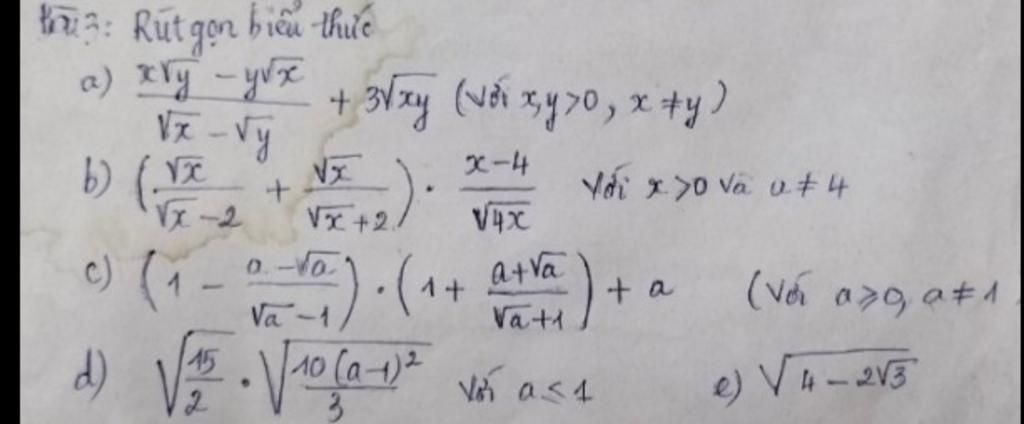 Bài 3: Rút gọn biểu thức
a) (x√y - y√x)/(√x - √y) + 3√xy (với x,y>0, x ≠ y)
b) (√x/(√x - 2) + √x/(√x + 2)) · (x-4)/√4x với x>0 và a ≠ 4
c) (1 - (a-√a)/(√a-1)) · (1 + (a+√a)/(√a+1)) + a (Với a≥0, a≠1
d) √(15/2) · √(10(a-1)²/3) với a≤1 e) √(4-2√3)